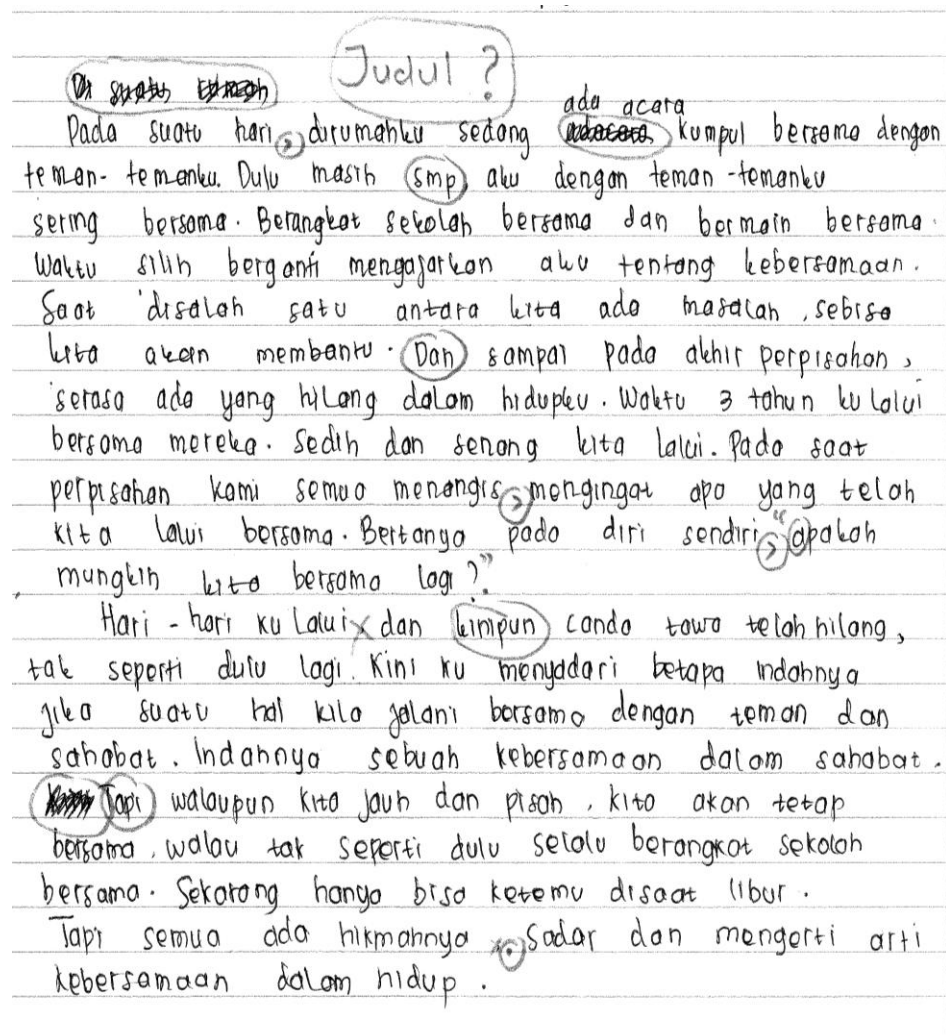 Judul ?
Pada suatu hari, dirumahku sedang ada acara kumpul bersama dengan
teman-temanku. Dulu masih smp, aku dengan teman-temanku
sering bersama. Berangkat sekolah bersama dan bermain bersama.
Waktu silih berganti mengajarkan aku tentang kebersamaan.
Saat disalah satu antara kita ada masalah, sebisa
kita akan membantu. Dan sampai pada akhir perpisahan,
serasa ada yang hilang dalam hidupku. Waktu 3 tahun ku lalui
bersama mereka. Sedih dan senang kita lalui. Pada saat
perpisahan kami semua menangis, mengingat apa yang telah
kita lalui bersama. Bertanya pada diri sendiri, "apakah
mungkin kita bersama lagi?"
Hari-hari ku lalui dan kinipun canda tawa telah hilang,
tak seperti dulu lagi. Kini ku menyadari betapa indahnya
jika suatu hal kita jalani bersama dengan teman dan
sahabat. Indahnya sebuah kebersamaan dalam sahabat.
Tapi walaupun kita jauh dan pisah, kita akan tetap
bersama, walau tak seperti dulu selalu berangkat sekolah
bersama. Sekarang hanya bisa ketemu disaat libur.
Tapi semua ada hikmahnya. Sadar dan mengerti arti
kebersamaan dalam hidup.